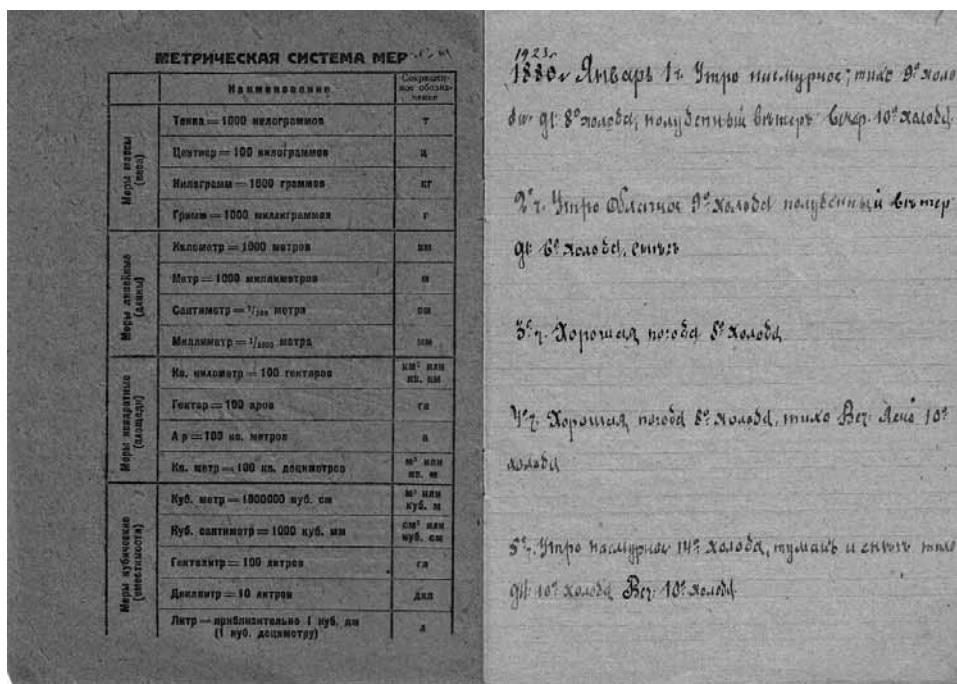 МЕТРИЧЕСКАЯ СИСТЕМА МЕР
Наименование
Сокращен-
ное обозна-
чение
Меры массы
(веса)
Тонна = 1000 килограммов
т
Центнер = 100 килограммов
ц
Килограмм = 1000 граммов
кг
Грамм = 1000 миллиграммов
г
Меры линейные
(длины)
Километр = 1000 метров
км
Метр = 1000 миллиметров
м
Сантиметр = 1/100 метра
см
Миллиметр = 1/1000 метра
мм
Меры квадратные
(площади)
Кв. километр = 100 гектаров
км² или
кв. км
Гектар = 100 аров
га
Ар = 100 кв. метров
а
Кв. метр = 100 кв. дециметров
м² или
кв. м
Меры кубические
(вместимости)
Куб. метр = 1000000 куб. см
м³ или
куб. м
Куб. сантиметр = 1000 куб. мм
см³ или
куб. см
Гектолитр = 100 литров
гл
Декалитр = 10 литров
дкл
Литр = приблизительно 1 куб. дм
(1 куб. дециметру)
л
1923г
1880г Январь 1г. Утро пасмурное; тихо 9° холо
8° холода, полуденный вѣтеръ Вечер. 10° холода.
2°г. Утро Облачное 9° холода полуденный вѣтер
6° холода, снѣгъ
3°г. Хорошая погода 8° холода
4°г. Хорошая погода 8° холода, тихо Веч. Ясно 10°
холода
5°г. Утро пасмурное 14° холода, туманъ и снѣгъ тихо
10° холода Веч. 10° холода